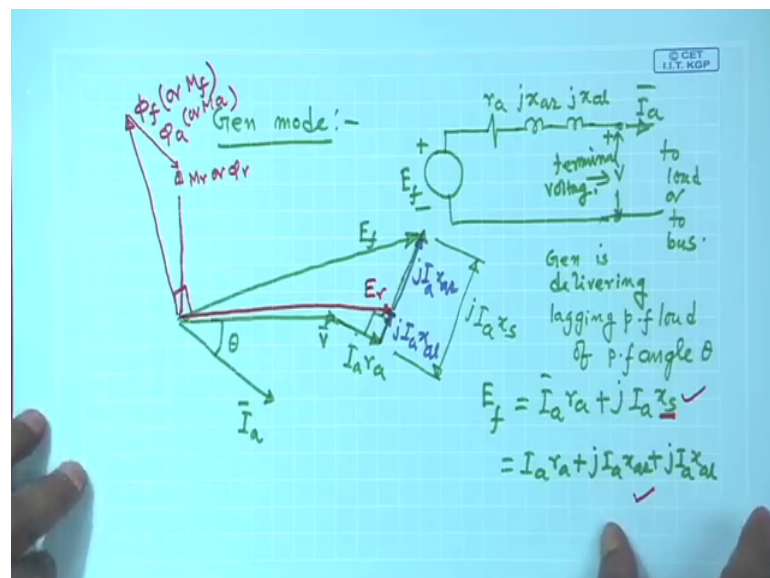 © CET
I.I.T. KGP
ϕf (or Mf)
ϕa (or Ma)
Mr or ϕr
Gen mode:-
ra jxar jxal
Īa
+
Ef
-
+
terminal
voltage.
V
to
load
or
to
bus.
Ef
Er
jIa xar
jIa xal
jIa xs
θ
V̄
Ia ra
Īa
Gen is
delivering
lagging p.f load
of p.f angle θ
Ef = Īa ra + j Ia xs ✓
= Ia ra + jIa xar + jIa xal
✓